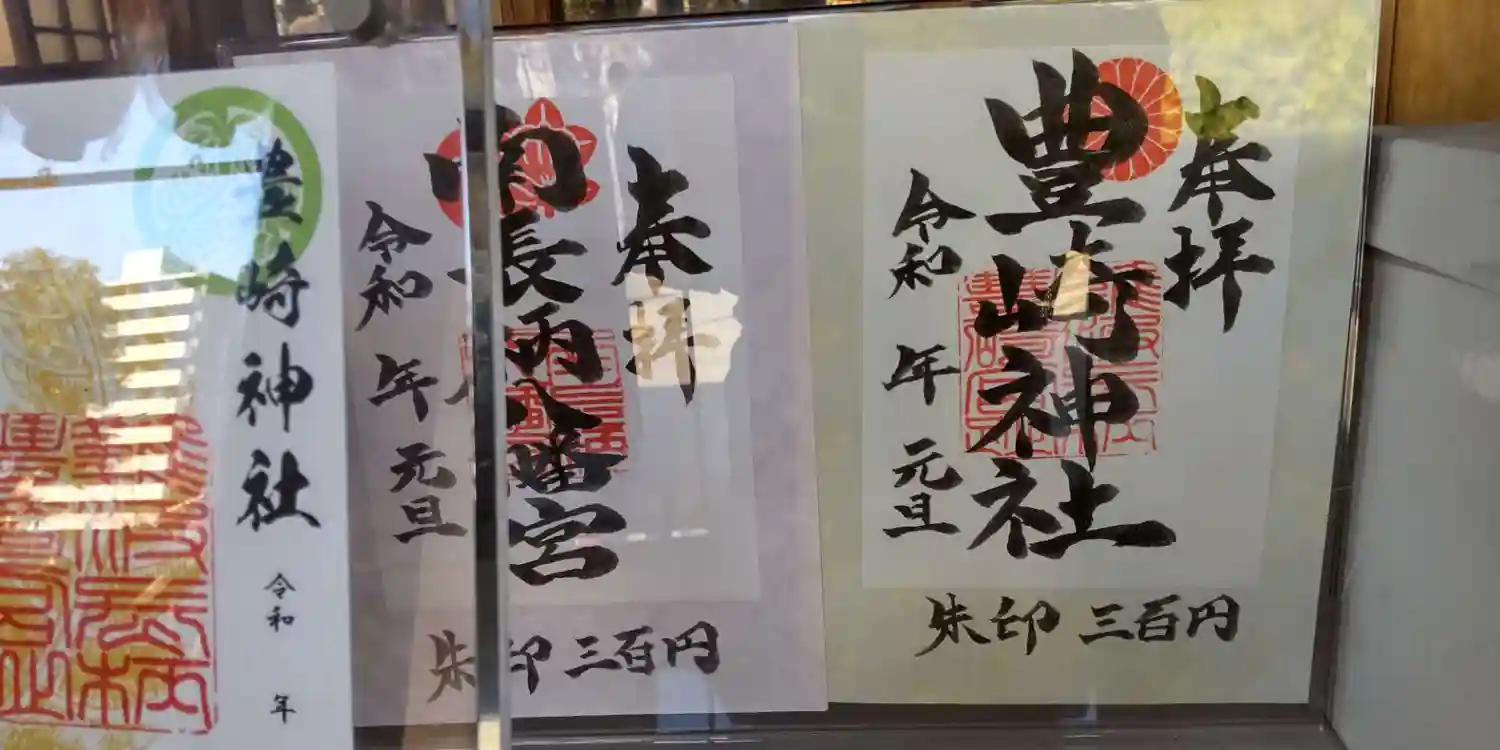 奉拝
豊崎神社
令和 年 元旦
朱印 三百円
奉拝
南長柄八幡宮
令和 年 元旦
朱印 三百円
豊崎神社
令和 年